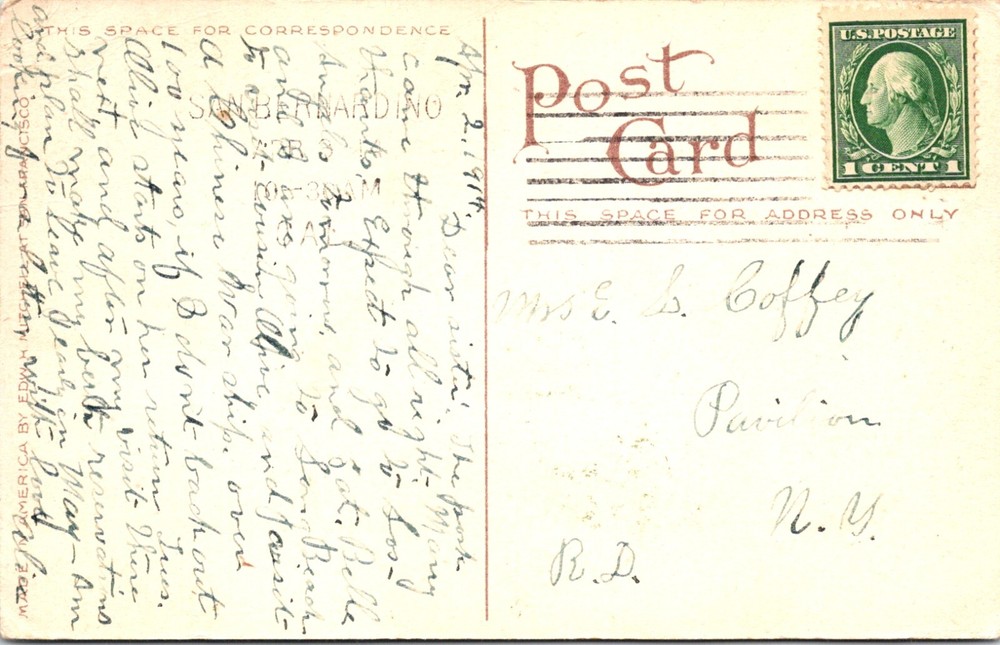 THIS SPACE FOR CORRESPONDENCE
Post
Card
U.S. POSTAGE
1 CENT 1
THIS SPACE FOR ADDRESS ONLY
SAN BERNARDINO
APR 3
30 AM
MADE IN AMERICA BY EDW. H. MITCHELL SAN FRANCISCO
Apr. 2. 1914.
Dear sister. The book
came through all right. Many
thanks. Expect to go to Los-
Angeles Tomorrow, and Sat. Belle
and I are going to Long Beach
to cousin Olive, and
a Chinese War ship. over
100 years, if B don't back out
Alice starts on her return Tues.
next and after my visit there
shall make my berth reservations
and plan to leave early in May - Am
looking for a letter with love
Mrs E. L. Coffey
Pavilion
N. Y.
R.D.